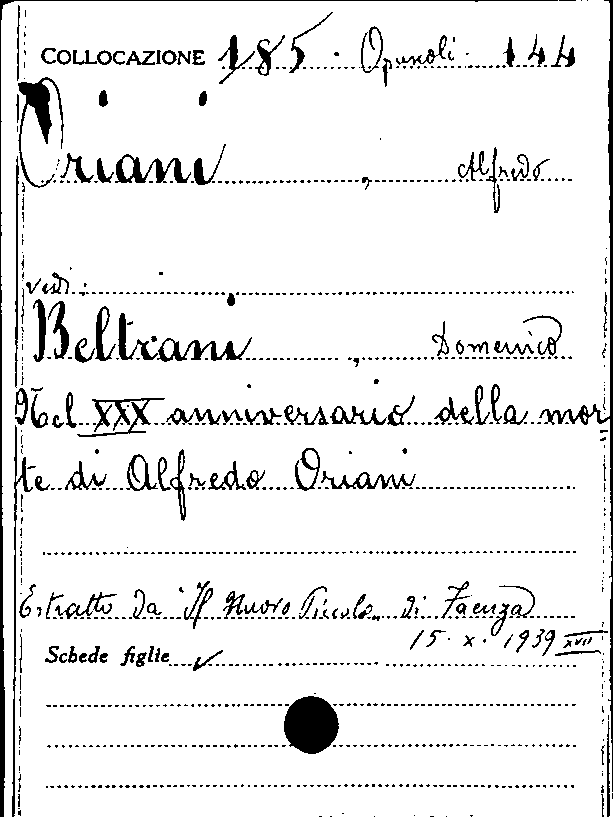 COLLOCAZIONE 185 · Opuscoli · 144
Oriani, Alfredo
vedi:
Beltrani, Domenico
Nel XXX anniversario della mor
te di Alfredo Oriani
Estratto da "Il Nuovo Piccolo" di Faenza
15 · X · 1939 XVII
Schede figlie ✓